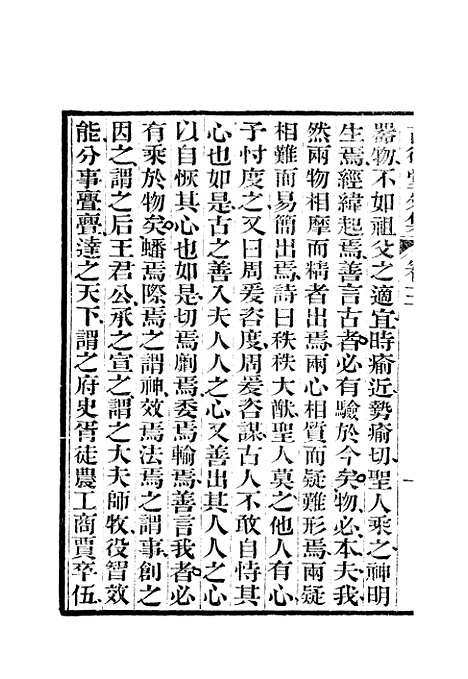 器物不如祖父之適宜時瘉近勢瘉切聖人乘之神明
生焉經緯起焉善言古者必有驗於今矣物必本夫我
然兩物相摩而精者出焉兩心相質而疑難形焉兩疑
相難而易簡出焉詩曰秩秩大猷聖人莫之他人有心
予忖度之又曰周爰咨度周爰咨謀古人不敢自恃其
心也如是古之善入夫人人之心又善出其人人之心
以自恢其心也如是切焉劘焉委焉輸焉善言我者必
有乘於物矣蟠焉際焉之謂神效焉法焉之謂事創之
因之謂之后王君公承之宣之謂之大夫師牧役智效
能分事亹亹達之天下謂之府史胥徒農工商賈卒伍